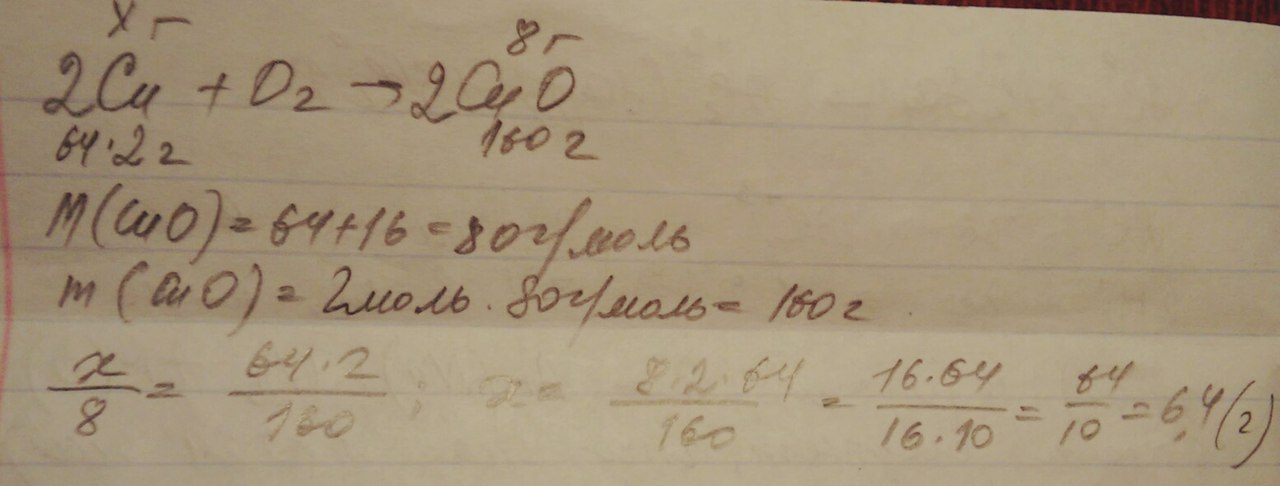 x г 8 г
2Cu + O₂ → 2CuO
64·2 г 160 г
M(CuO) = 64+16 = 80 г/моль
m(CuO) = 2 моль · 80 г/моль = 160 г
x/8 = 64·2/160 ; x = 8·2·64/160 = 16·64/16·10 = 64/10 = 6,4 (г)